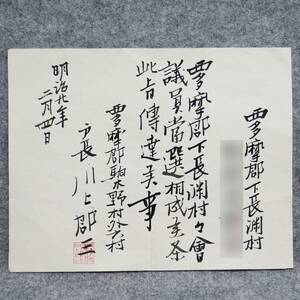 西多摩郡下長渕村
西多摩郡下長渕村々會
議員當選相成候条
此旨傳達候事
西多摩郡駒木野村外
戸長川上郡三
明治廿年
二月四日